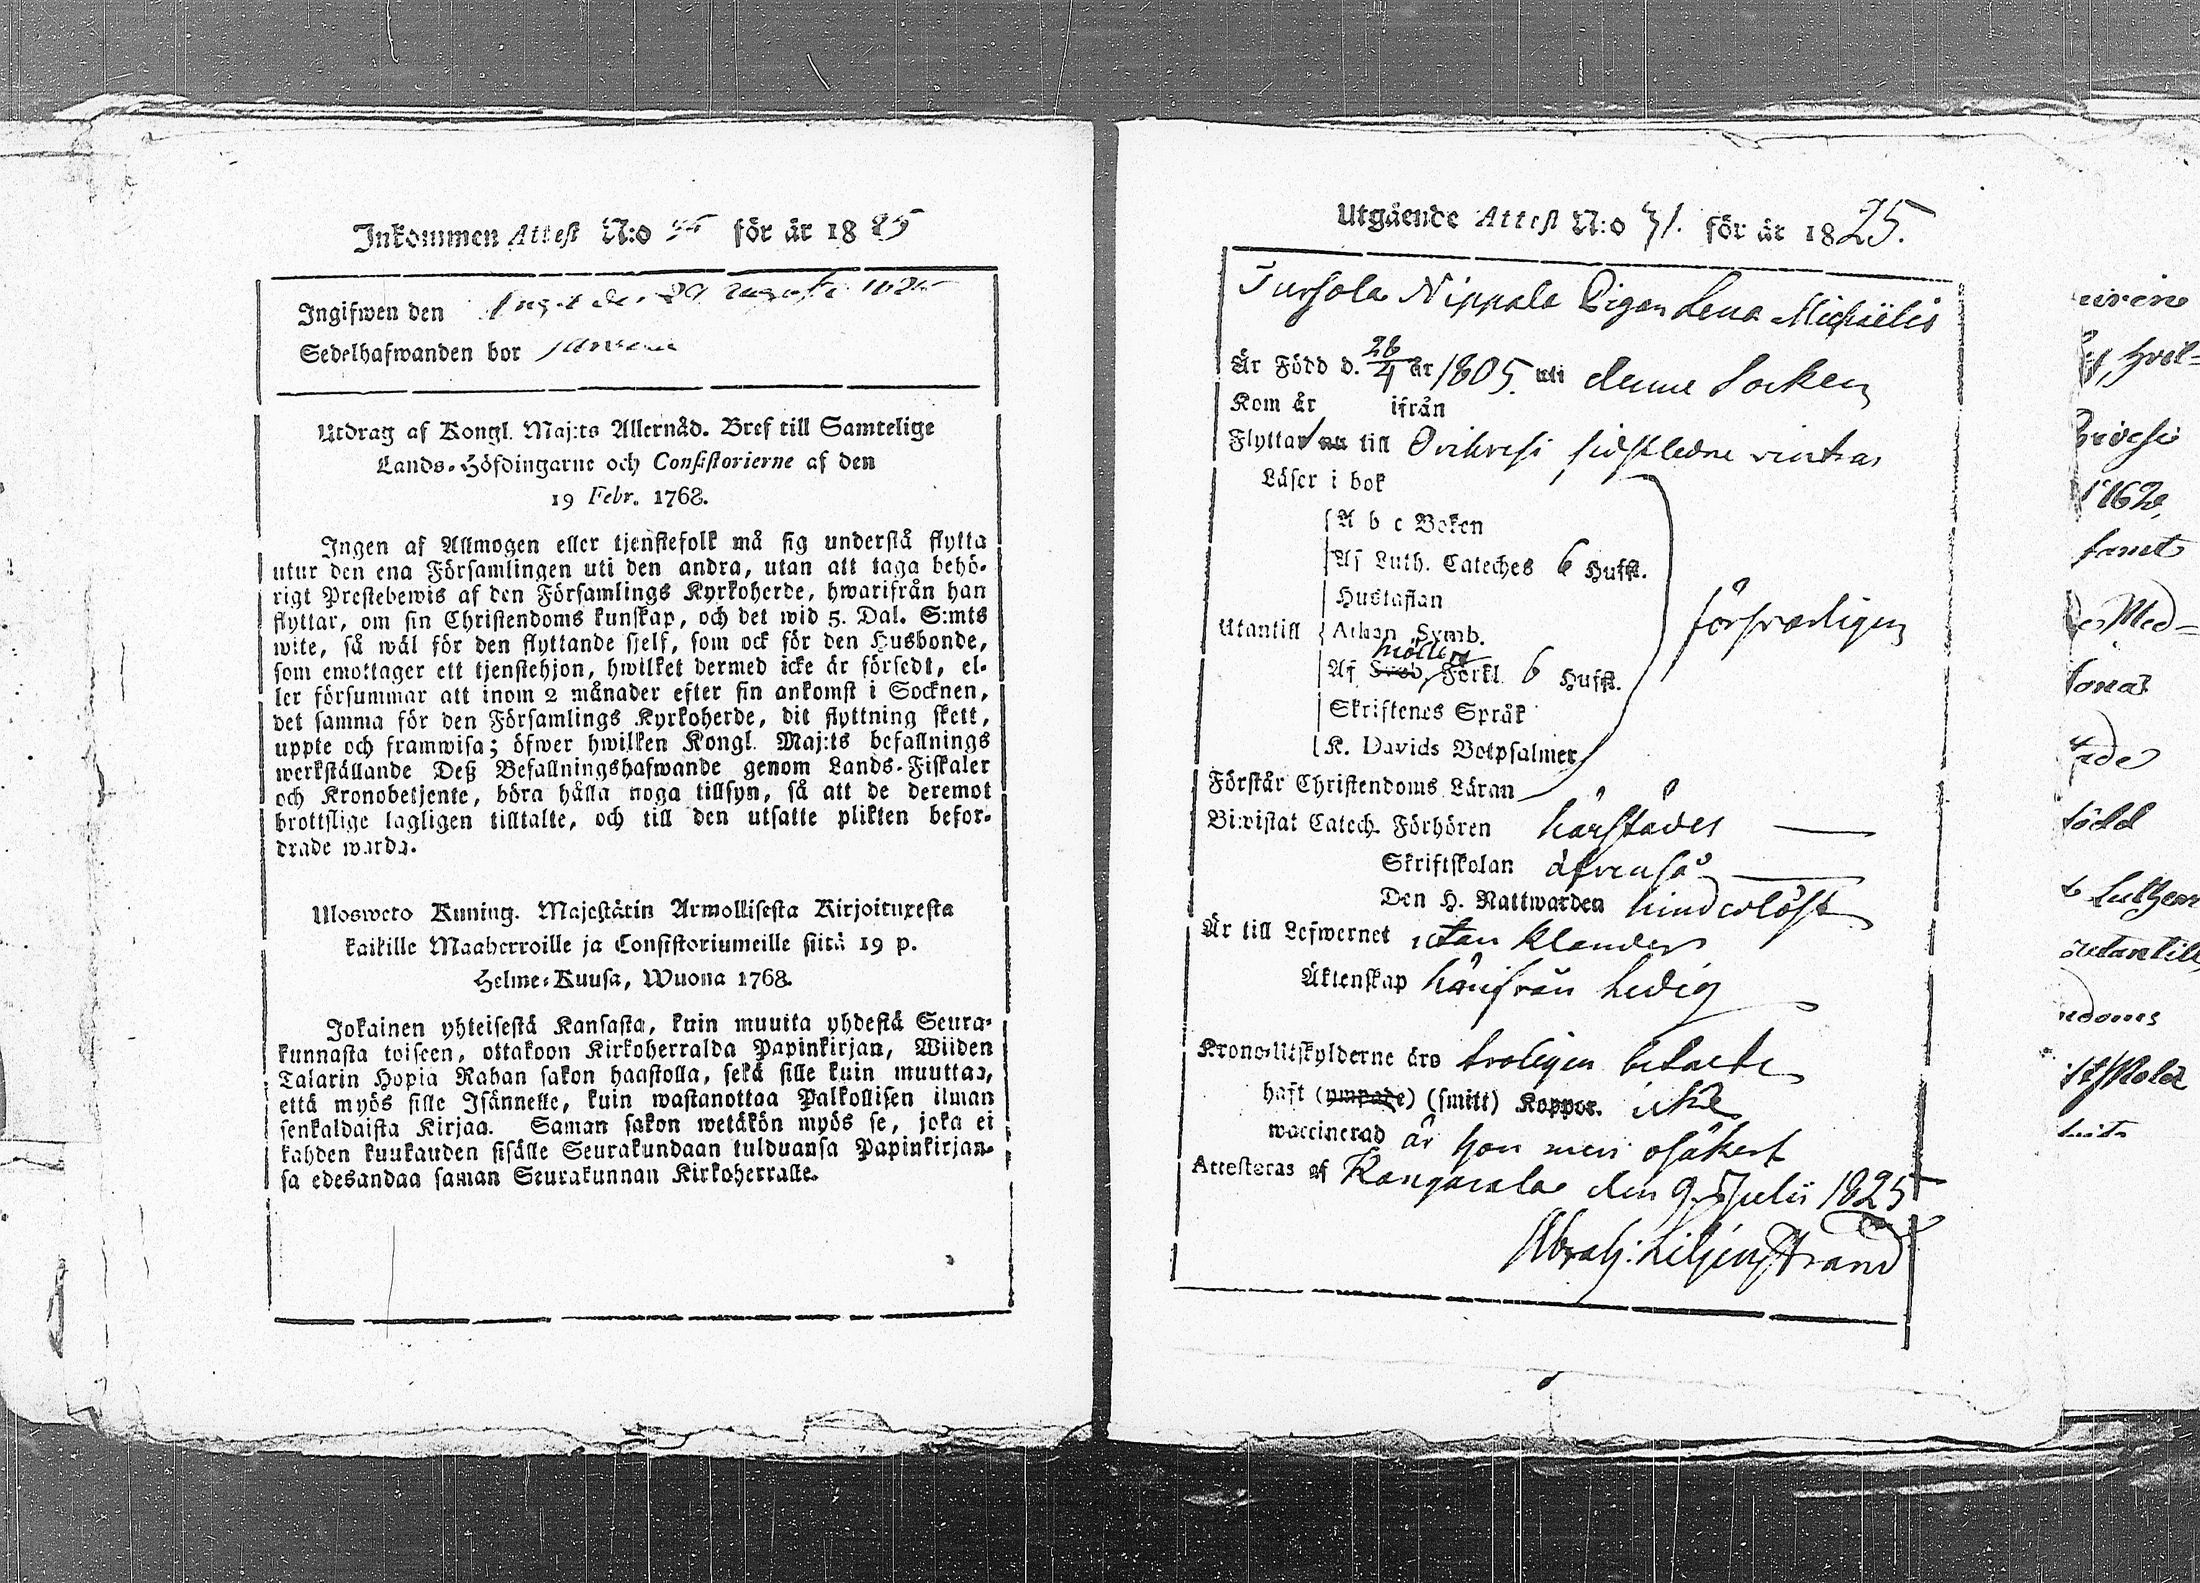 Inkommen Attest N:o för år 1825
Ingifwen den
Sedelhafwanden bor
Utdrag af Kongl. Maj:ts Allernåd. Bref till Samtelige
Lands-Höfdingarne och Consistorierne af den
19 Febr. 1768.
Ingen af Allmogen eller tjenstefolk må sig understå flytta
utur den ena Församlingen uti den andra, utan att taga behö-
rigt Prestebewis af den Församlings Kyrkoherde, hwarifrån han
flyttar, om sin Christendoms kunskap, och det wid 5. Dal. S:mts
wite, så wäl för den flyttande sjelf, som ock för den Husbonde,
som emottager ett tjenstehjon, hwilket dermed icke är försedt, el-
ler försummar att inom 2 månader efter sin ankomst i Socknen,
det samma för den Församlings Kyrkoherde, dit flyttning skett,
uppte och framwisa; öfwer hwilken Kongl. Maj:ts befallnings
werkställande Deß Befallningshafwande genom Lands-Fiskaler
och Kronobetjente, böra hålla noga tillsyn, så att de deremot
brottslige lagligen tilltalte, och till den utsatte plikten befor-
drade warda.
Ulosweto Kuning. Majestätin Armollisesta Kirjoituxesta
kaikille Maaherroille ja Consistoriumeille siitä 19 p.
Helme-Kuusa, Wuona 1768.
Jokainen yhteisestä Kansasta, kuin muutta yhdestä Seura-
kunnasta toiseen, ottakoon Kirkoherralda Papinkirjan, Wiiden
Talarin Hopia Rahan sakon haastolla, sekä sille kuin muuttaa,
että myös sille Isännelle, kuin wastanottaa Palkollisen ilman
senkaldaista Kirjaa. Saman sakon wetäkön myös se, joka ei
kahden kuukauden sisälle Seurakundaan tulduansa Papinkirjan-
sa edesandaa saman Seurakunnan Kirkoherralle.
Utgående Attest N:o 71. för år 1825.
Tursola Nippala Pigan Lena Michaëlis
Är Född d. 26/4 år 1805. uti denne Socken
Kom år ifrån
Flyttar nu till Orihvesi sidstledne vintras
Läser i bok
A b c Boken
Af Luth. Cateches 6 Hufst.
Hustaflan
Utantill Athan Symb. försvarligen
Möllers
Af Sveb. Förkl. 6 Hufst.
Skriftenes Språk
K. Davids Botpsalmer
Förstår Christendoms Läran
Biwistat Catech. Förhören härstädes
Skriftskolan äfvenså
Den H. Nattwarden hinderlöst
Är till Lefwernet utan klander
Äktenskap härifrån Ledig
Krono-Utskylderne äro troligen betalte
haft (ympade) (smitt) Koppor. icke
waccinerad är hon men osäkert
Attesteras af Kangasala den 9 Julii 1825
Abrah: Liljenstrand
1862
Med-
född
Luther